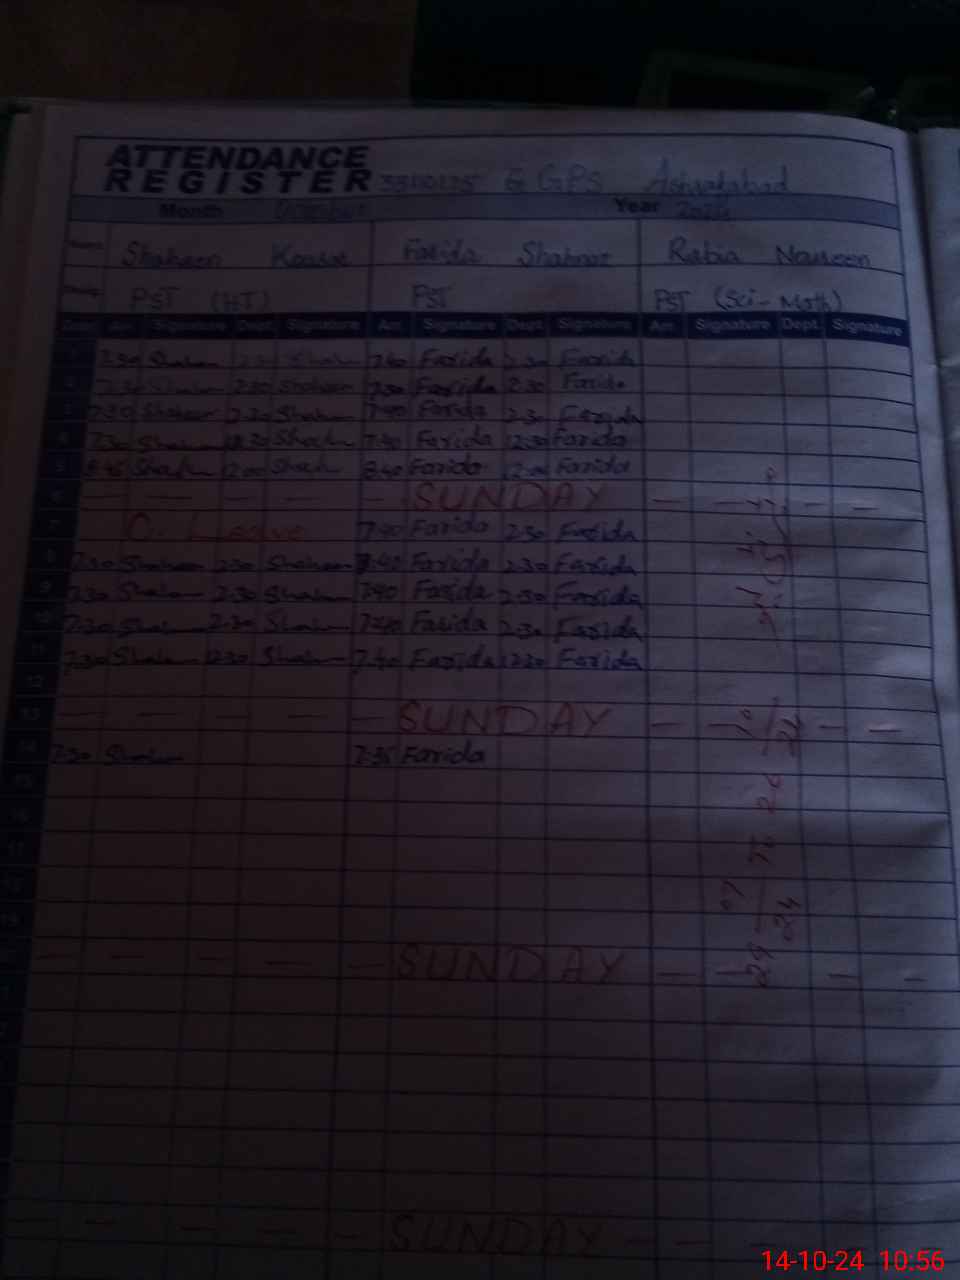 ATTENDANCE
REGISTER GGPS Ashrafabad
Month October Year 2024
Shaheen Kousar Farida Shahnaz Rabia Nousheen
PST (HT) PST PST (Sci-Math)
Arr. Signature Dept. Signature Arr. Signature Dept. Signature Arr. Signature Dept. Signature
7:30 Shaheen 2:30 Shaheen 7:40 Farida 2:30 Farida
7:30 Shaheen 2:30 Shaheen 7:30 Farida 2:30 Farida
7:30 Shaheen 2:30 Shaheen 7:40 Farida 2:30 Farida
4 7:30 Shaheen 12:30 Shaheen 7:40 Farida 12:30 Farida
5 8:45 Shaheen 12:00 Shaheen 8:40 Farida 12:00 Farida
6 SUNDAY
7 C. Leave 7:40 Farida 2:30 Farida
8 7:30 Shaheen 2:30 Shaheen 7:40 Farida 2:30 Farida
9 7:30 Shaheen 2:30 Shaheen 7:40 Farida 2:30 Farida
10 7:30 Shaheen 2:30 Shaheen 7:40 Farida 2:30 Farida
11 7:30 Shaheen 12:30 Shaheen 7:40 Farida 12:30 Farida
12
13 SUNDAY
14 7:30 Shaheen 7:35 Farida
15
16
17
18
19
SUNDAY
SUNDAY
14-10-24 10:56